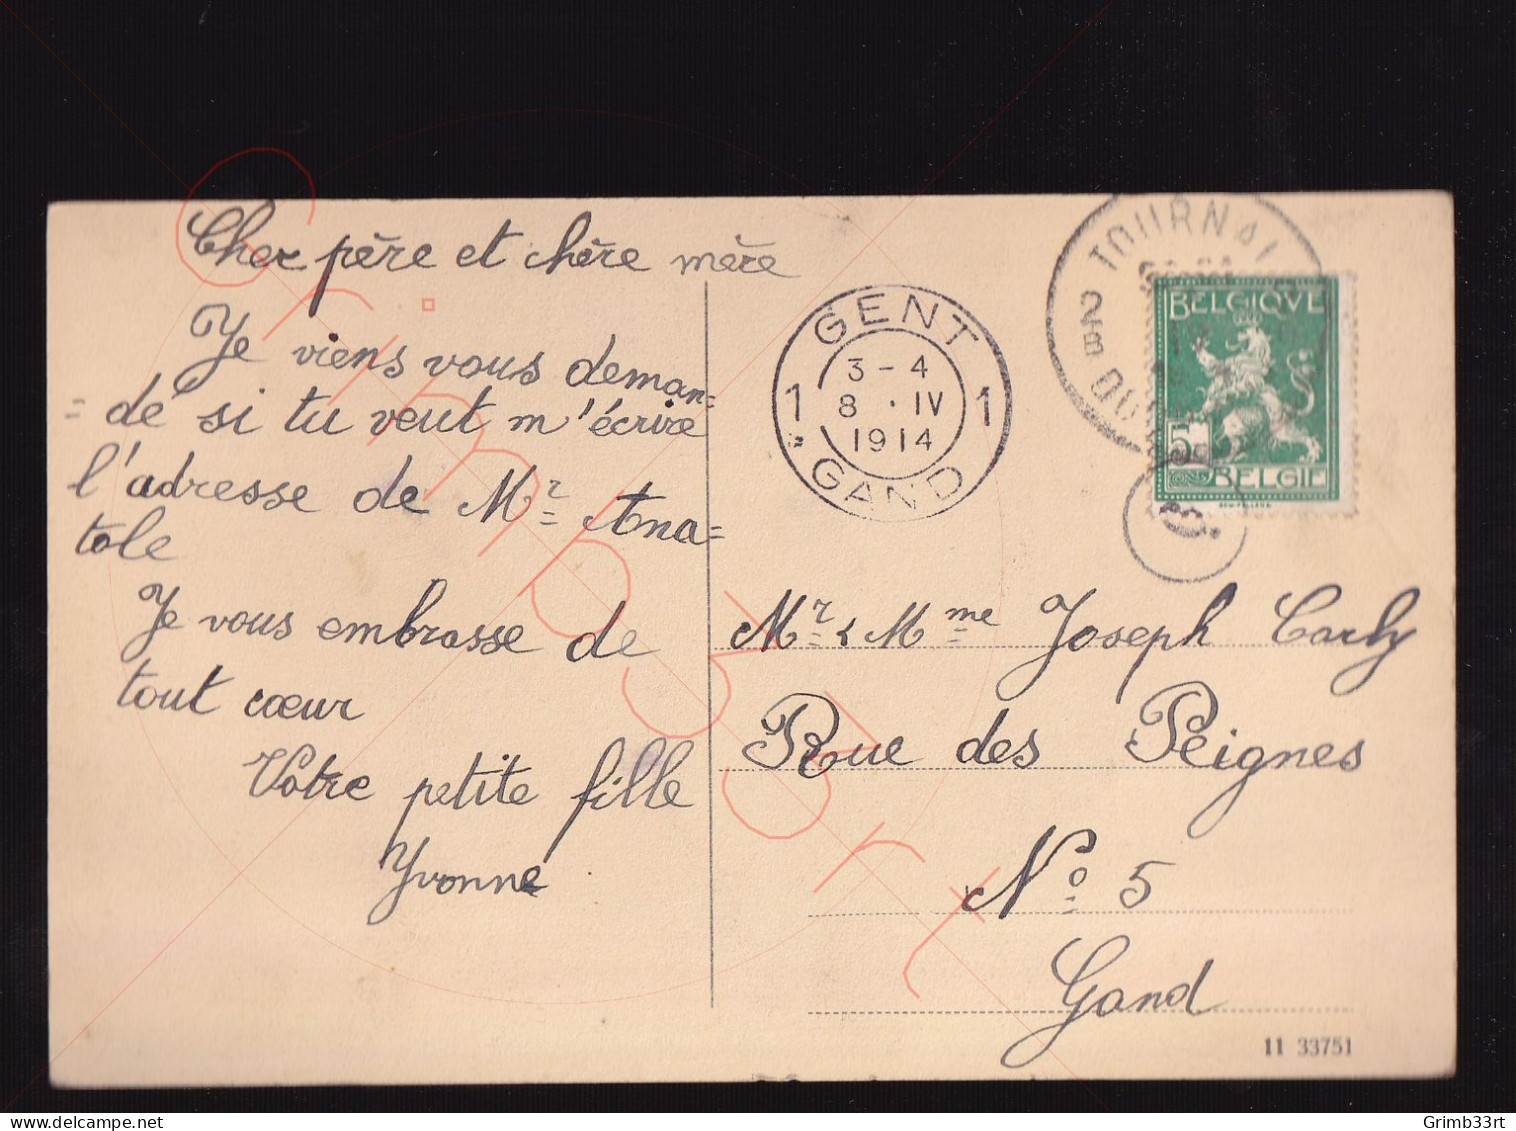 Cher père et chère mère
Je viens vous deman=
=dé si tu veut m'écrire
l'adresse de Mr Ana=
tole
Je vous embrasse de
tout cœur
Votre petite fille
Yvonne
GENT
1 3 - 4 1
8 . IV
1914
GAND
TOURNAI
BELGIQUE
5
BELGIË
Mr & Mme Joseph Carly
Rue des Peignes
No 5
Gand
11 33751
Grimb33rt
delcampe.net
Grimb33rt